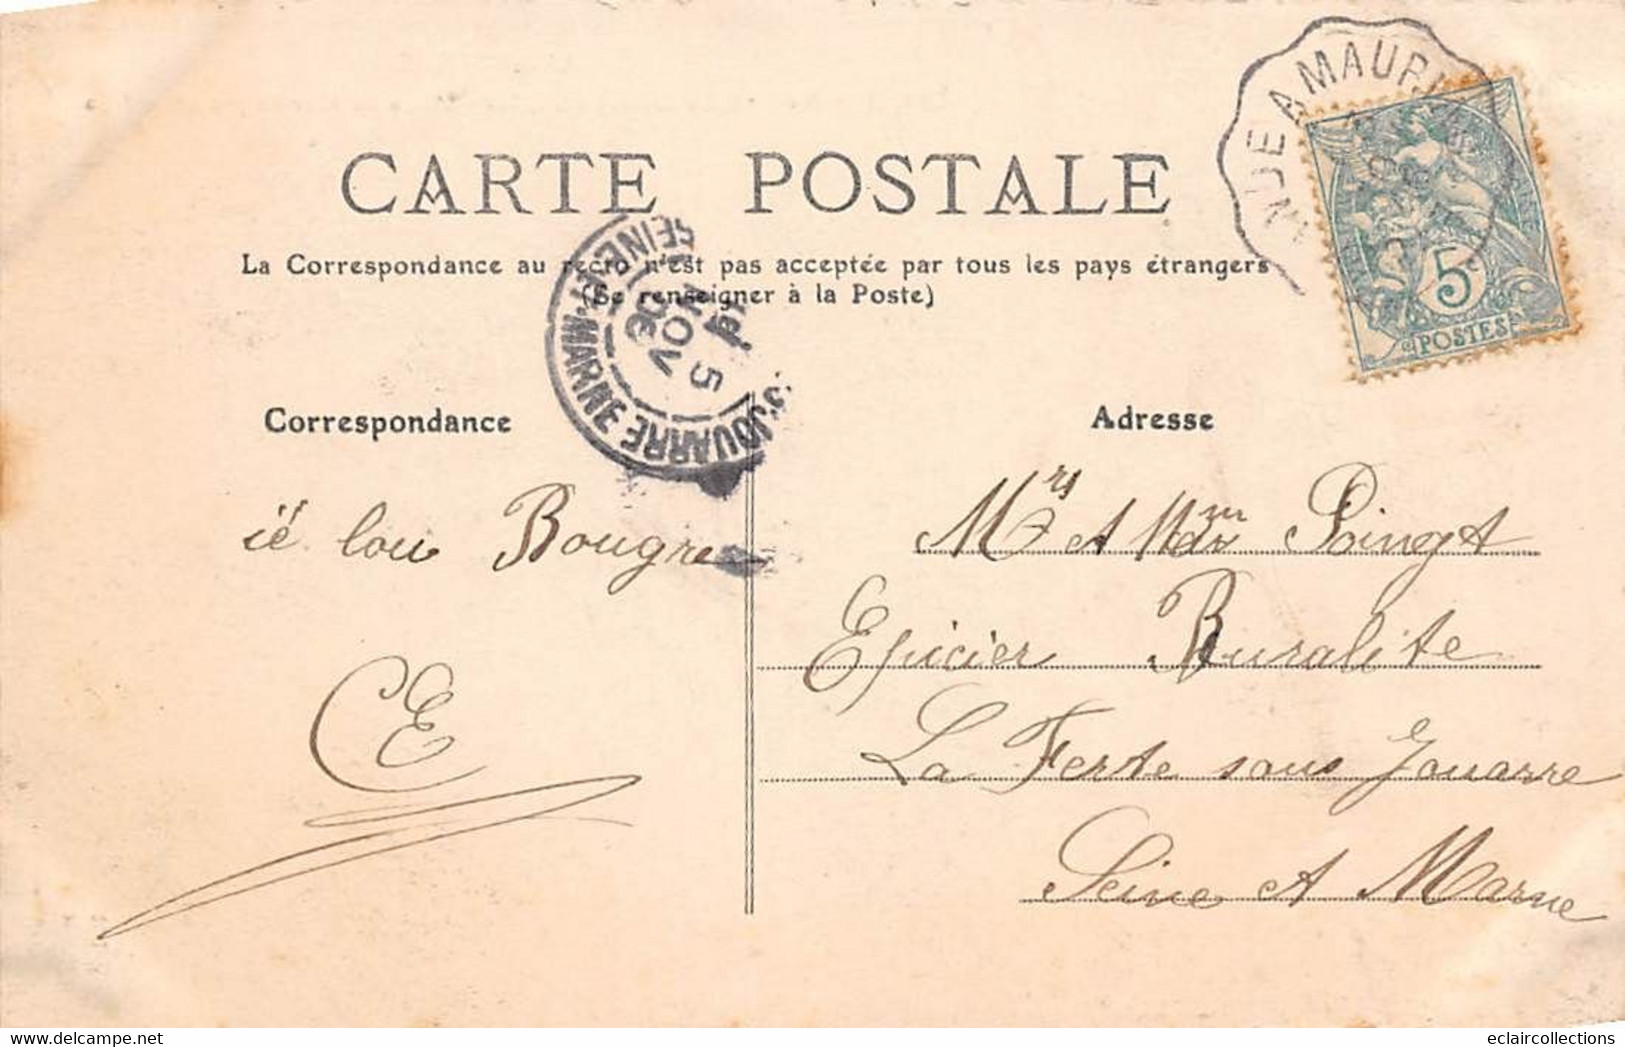 CARTE POSTALE
La Correspondance au recto n'est pas acceptée par tous les pays étrangers
(Se renseigner à la Poste)
5
POSTES
JOUARRE
SEINE-ET-MARNE
5
NOV
06
Correspondance
Adresse
ié lou Bougre
CE
Mrs et Mdm Poinget
Epicier Buraliste
La Ferte sous Jouarre
Seine et Marne
eclaircollections